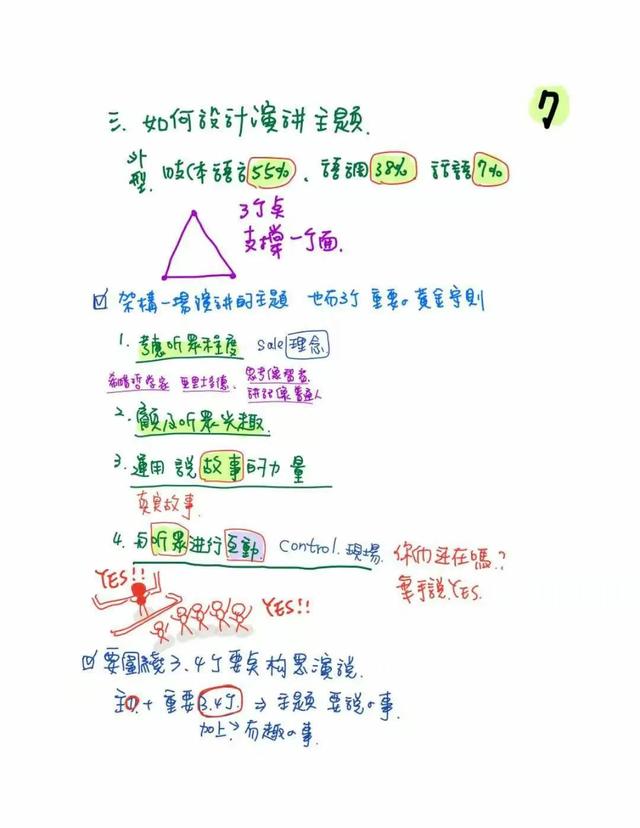 7
三、如何設計演讲主題.
外型. 肢体語言 55%、語調 38% 話語 7%
3个点
支撑一个面.
架構一場演讲的主題 也有3个重要の黃金守則
1. 考慮听眾程度 sale 理念
希臘哲学家 亚里士多德、思考像智者、
講話像普通人
2. 顧及听眾兴趣.
3. 運用 說故事的力量
真實故事.
4. 与听眾进行互動. control.現場.
你们还在嗎?
舉手說 YES.
YES!!
YES!!
要圍繞3.4个要点构思演說.
主1 + 重要3.4个. ⇒ 主題 要說の事.
加上→ 有趣の事.